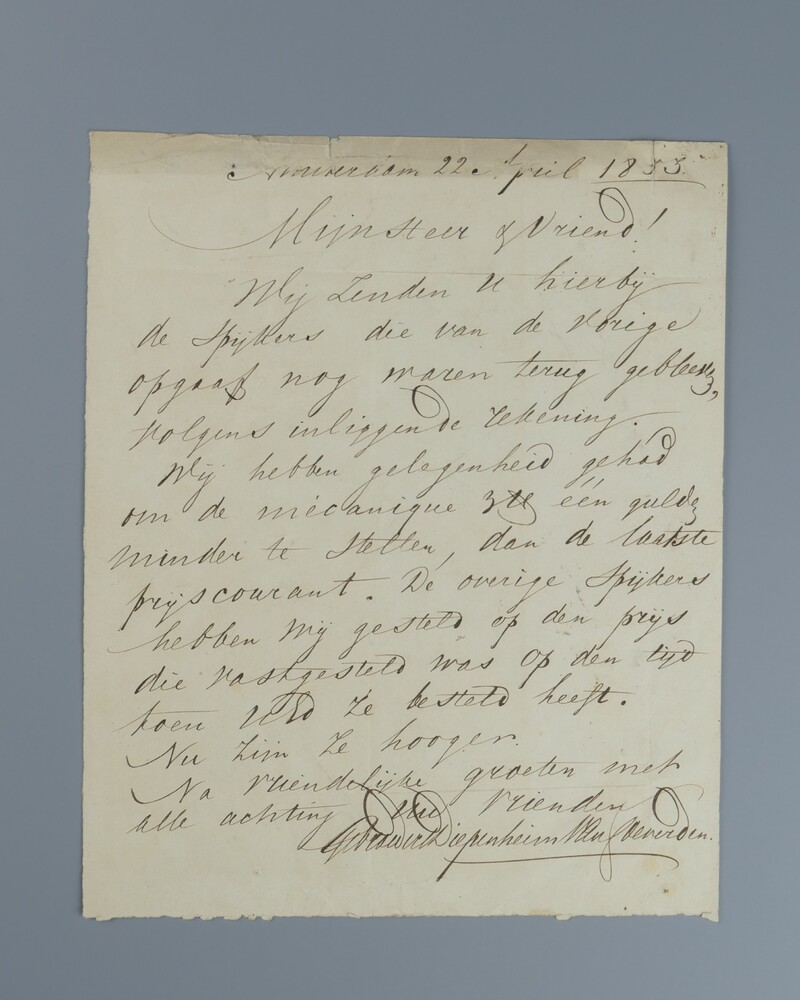 Amsterdam 22. April 1855.
Mijn Heer & Vriend!
Wij Zenden U hierbij
de Spijkers die van de Vorige
opgaaf nog waren terug gebleven,
Volgens inliggende Rekening.
Wij hebben gelegenheid gehad
om de mécanique één gulden
minder te Stellen, dan de laatste
prijscourant. De overige Spijkers
hebben Wij gesteld op den prijs
die vastgesteld was op den tijd
toen UEd Ze besteld heeft.
Nu Zijn Ze hooger.
Na Vriendelijke groeten met
alle achting Uw Vrienden
Gebroeders Diepenheim